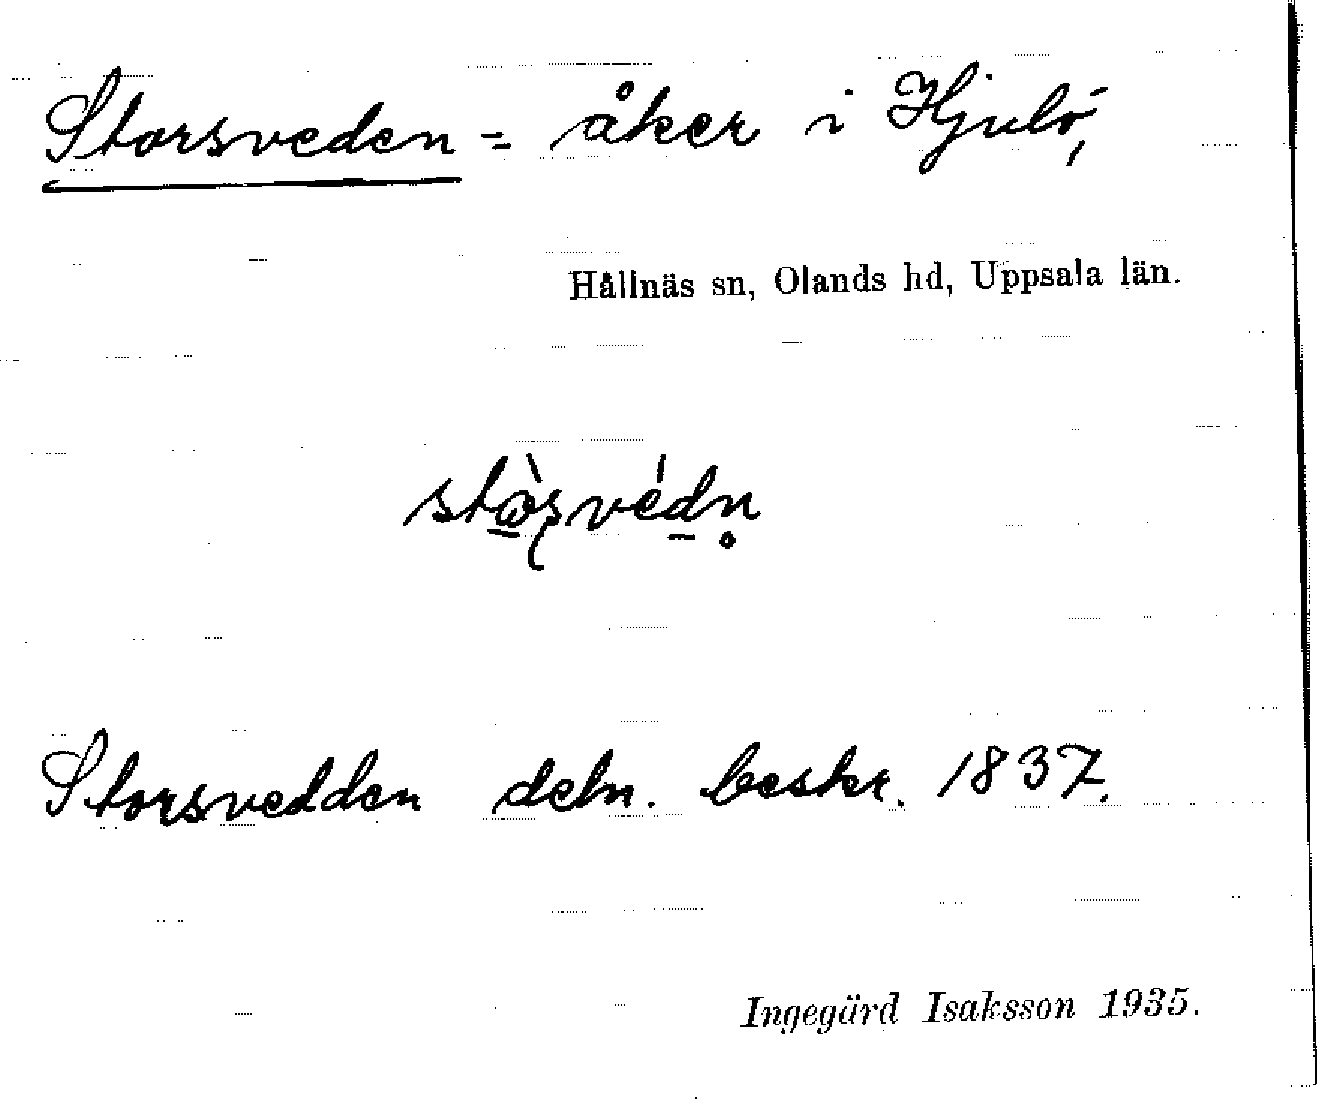 Storsveden = åker i Hjulö,
Hållnäs sn, Olands hd, Uppsala län.
Storsvedden deln. beskr. 1837.
Ingegärd Isaksson 1935.